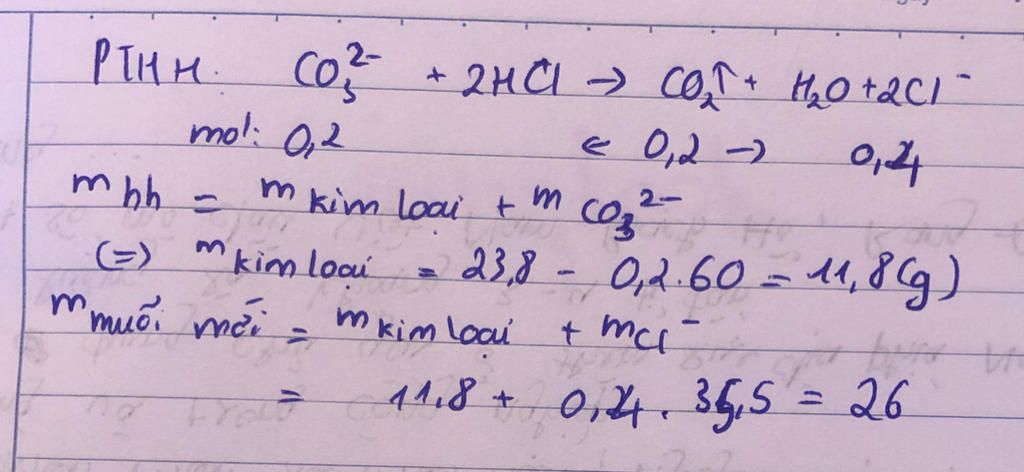 PTHH. CO₃²⁻ + 2HCl → CO₂↑ + H₂O + 2Cl⁻
mol: 0,2 ← 0,2 → 0,4
m hh = m kim loại + m CO₃²⁻
(=) m kim loại = 23,8 - 0,2.60 = 11,8(g)
m muối mới = m kim loại + m Cl⁻
= 11,8 + 0,4. 35,5 = 26